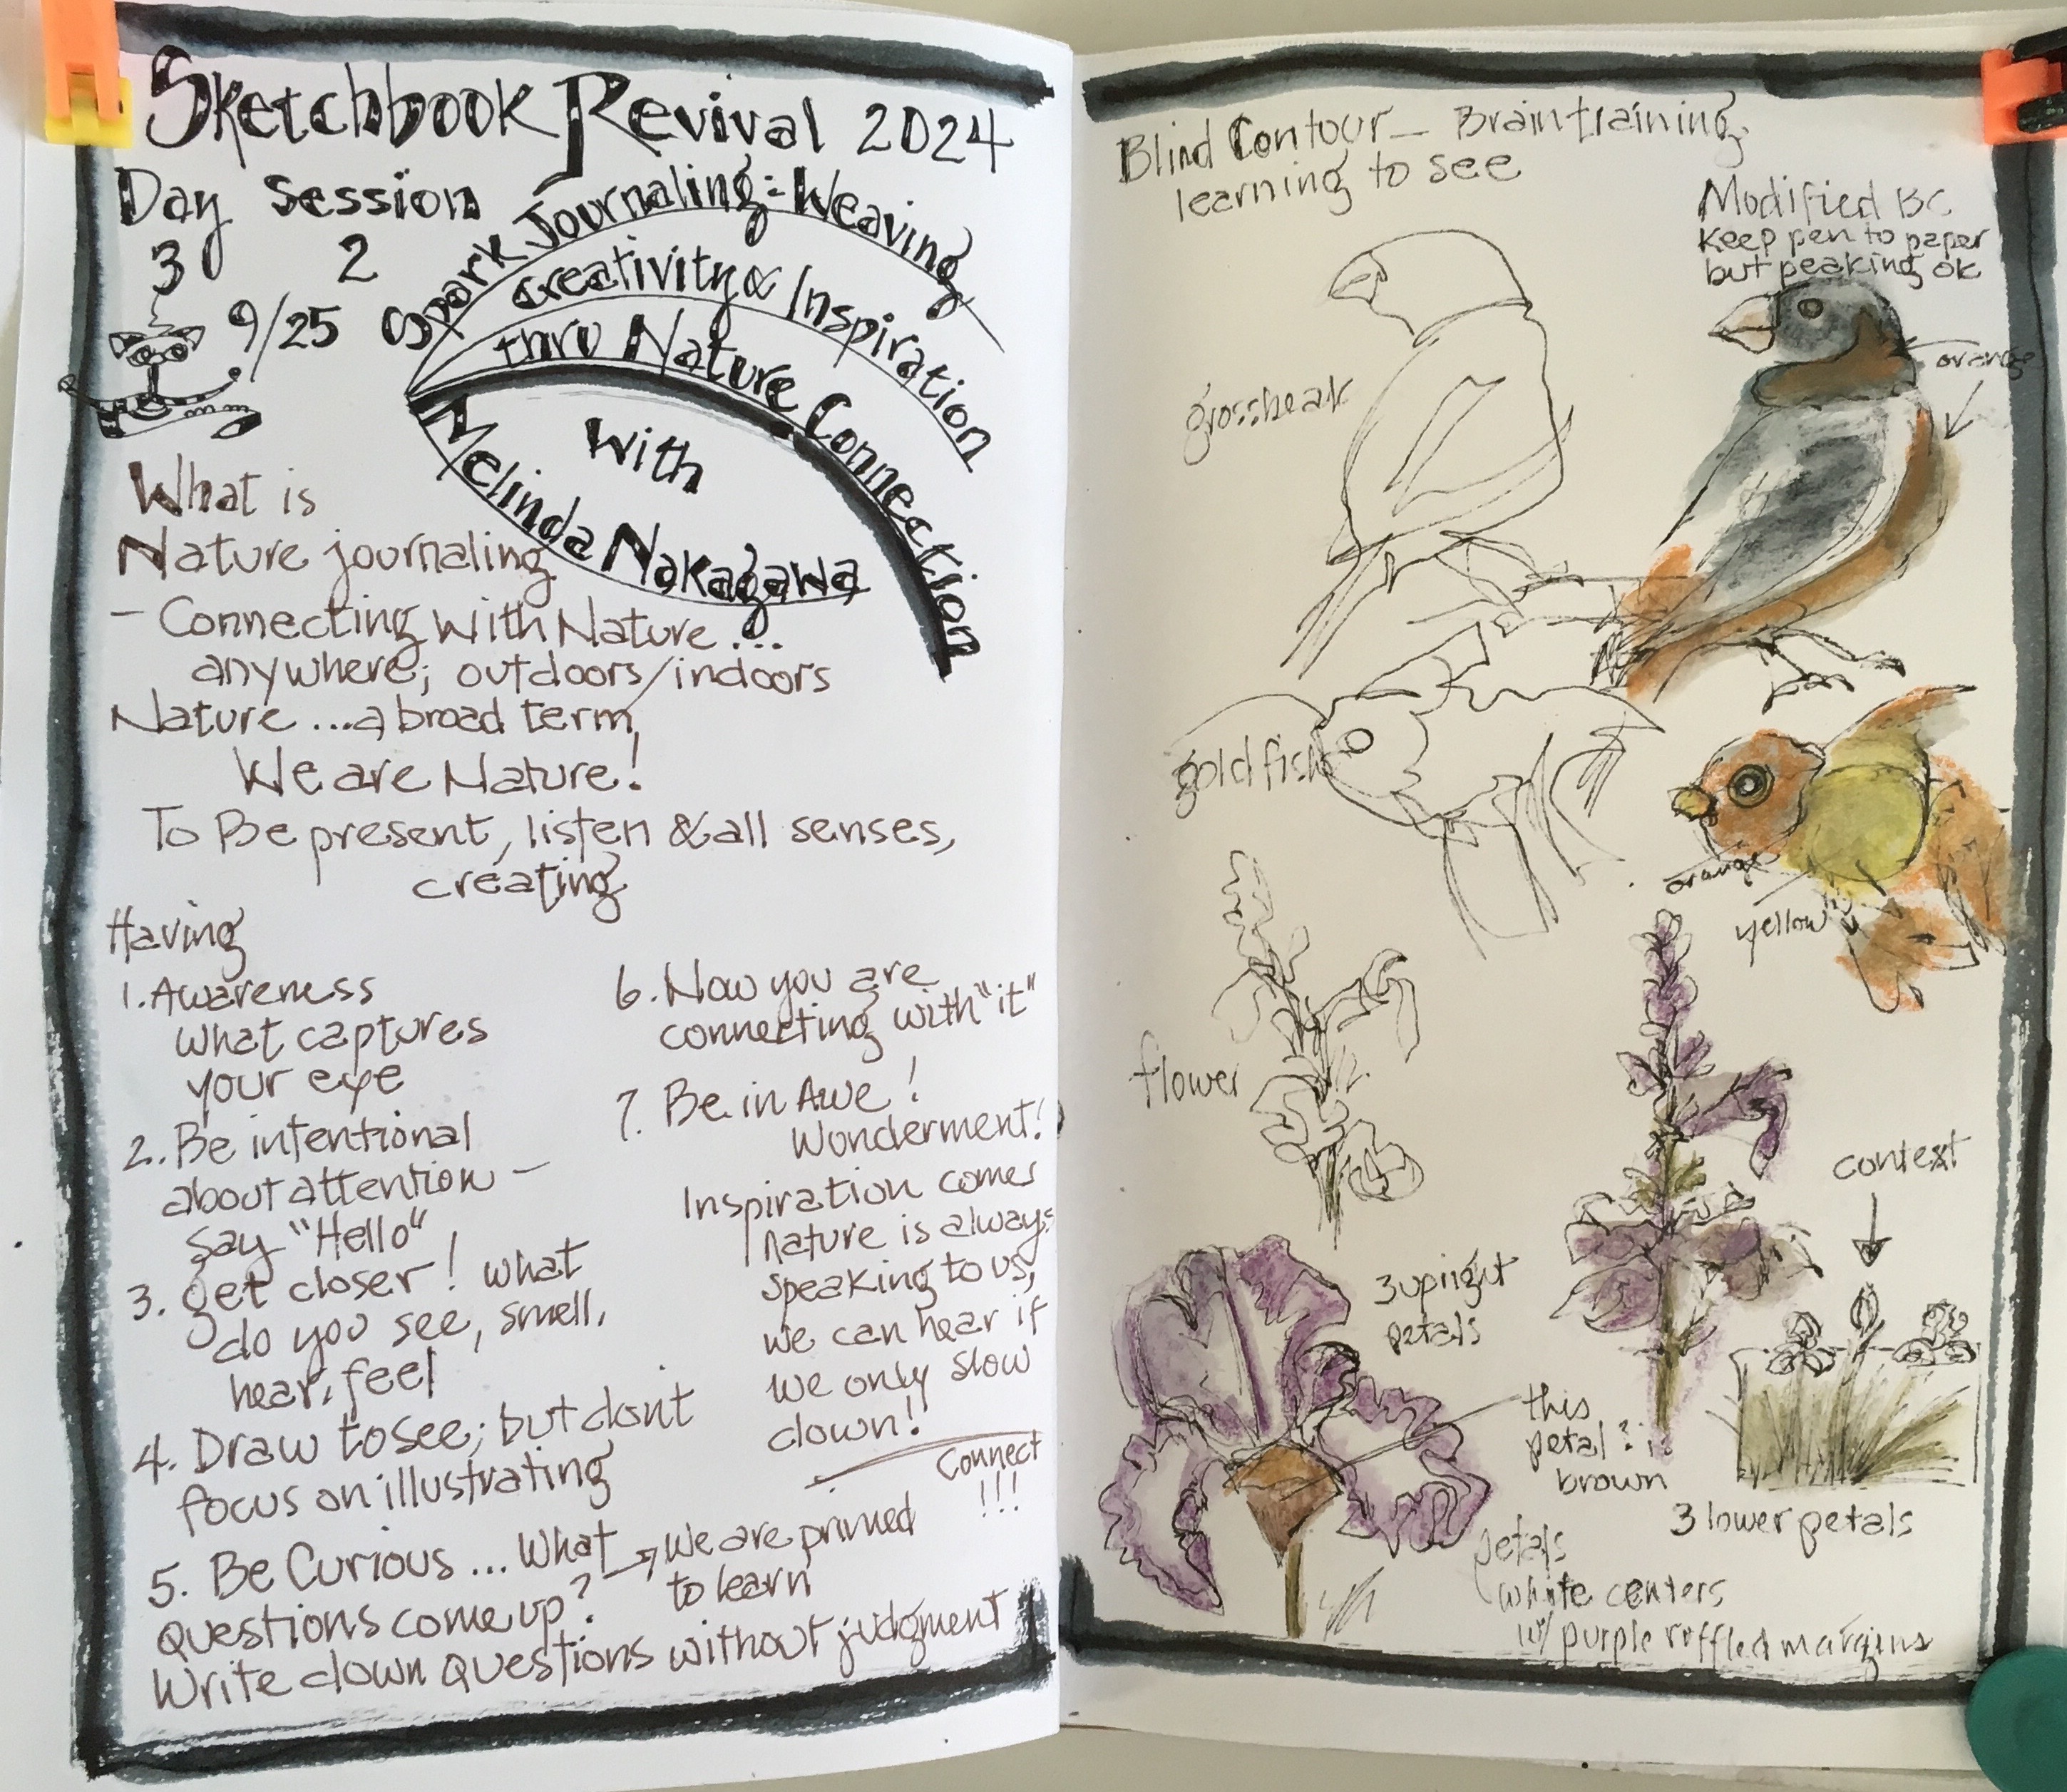 Sketchbook Revival 2024
Day Session
3 2
9/25
Spark Journaling: Weaving
Creativity & Inspiration
thru Nature Connection
With
Melinda Nakagawa
What is
Nature journaling
- Connecting with Nature...
anywhere; outdoors/indoors
Nature ... a broad term
We are Nature!
To Be present, listen & all senses,
creating
Having
1. Awareness
what captures
your eye
2. Be intentional
about attention -
Say "Hello"
3. get closer! what
do you see, smell,
hear, feel
4. Draw to see; but dont
focus on illustrating
5. Be Curious ... What
questions come up?
→ We are primed
to learn
Write down questions without judgment
6. Now you are
connecting with "it"
7. Be in Awe!
Wonderment!
Inspiration comes
nature is always
speaking to us,
we can hear if
we only slow
down!!
Connect
!!!
Blind Contour - Braintraining
learning to see
Modified BC
Keep pen to paper
but peaking ok
grossbeak
orange
gold fish
orange
yellow
flower
context
3 upright
petals
this
petal? is
brown
3 lower petals
petals
white centers
w/ purple ruffled margins